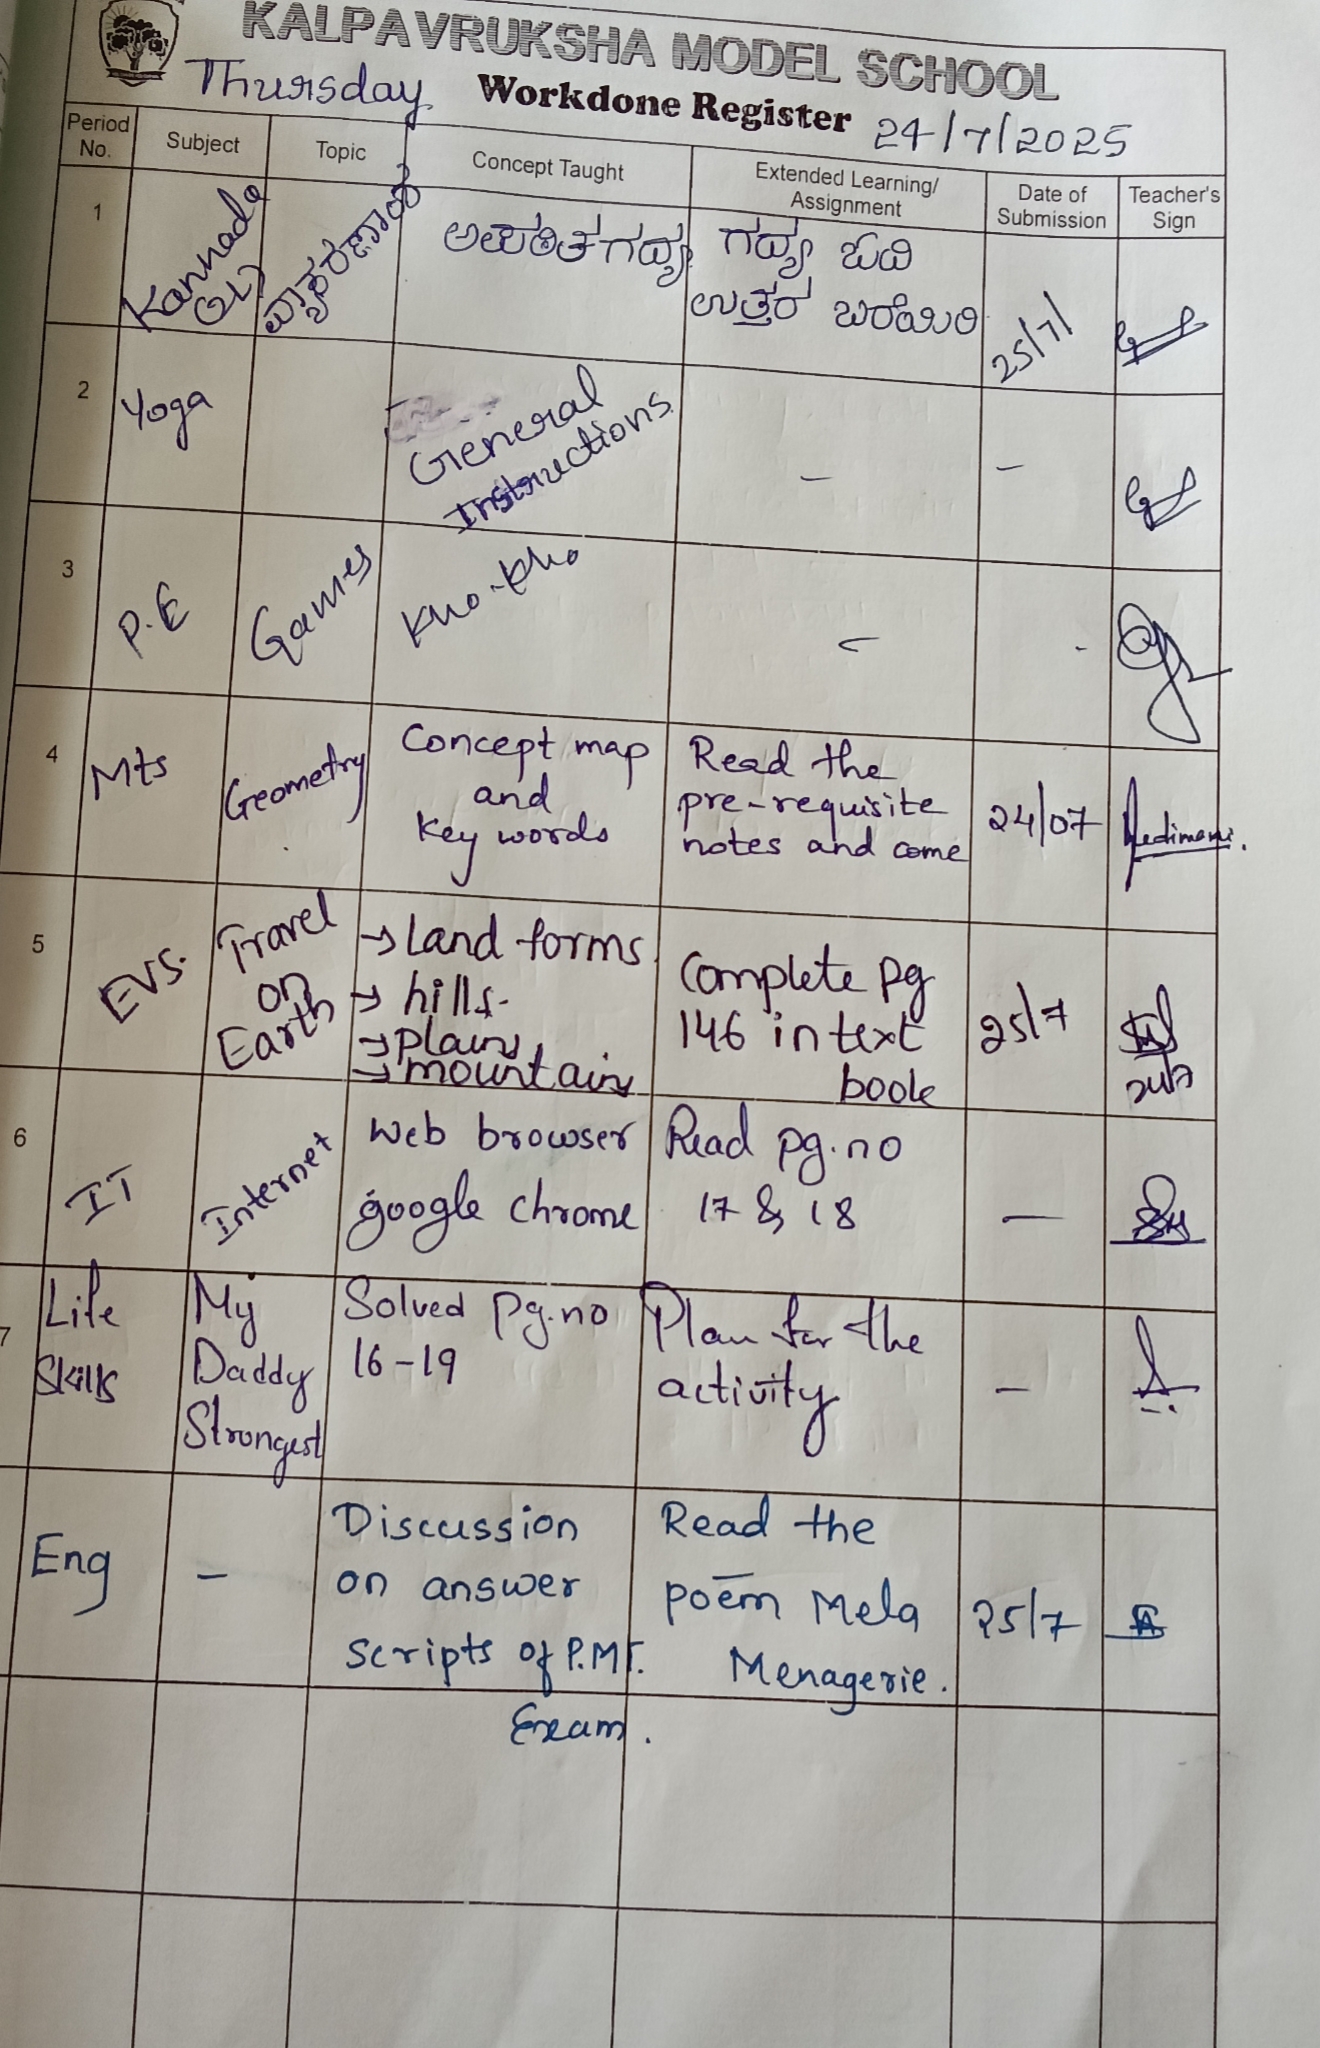 KALPAVRUKSHA MODEL SCHOOL
Thursday Workdone Register 24/7/2025
Period No. Subject Topic Concept Taught Extended Learning/ Assignment Date of Submission Teacher's Sign
1 Kannada ವ್ಯಾಕರಣಾಂಶ ಅಪಠಿತ ಗದ್ಯ ಗದ್ಯ ಓದಿ
ಉತ್ತರ ಬರೆಯಿರಿ 25/7/
2 Yoga General
Instructions – –
3 P.E Games Kho-kho – -
4 Mts Geometry Concept map Read the
and pre-requisite 24/07
Key words notes and come
5 EVS. Travel → Land forms. Complete pg
on → hills. 146 in text 25/7
Earth → plains book
→ mountains
6 IT Internet Web browser Read pg.no
google chrome 17 & 18 —
7 Life My Solved pg.no Plan for the
Skills Daddy 16-19 activity –
Strongest
Eng – Discussion Read the
on answer poem Mela 25/7
scripts of P.M.T. Menagerie.
Exam.